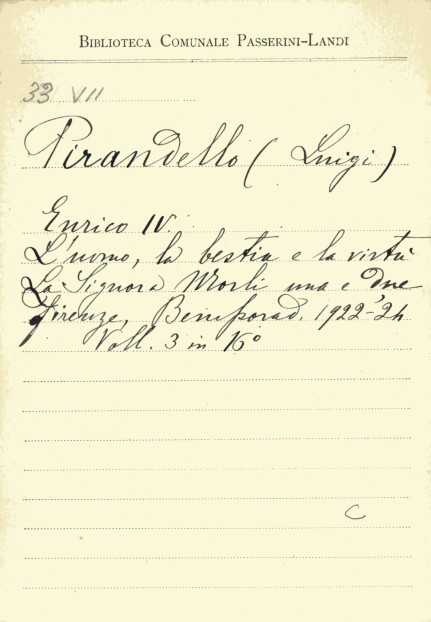 BIBLIOTECA COMUNALE PASSERINI-LANDI
33 VII
Pirandello ( Luigi )
Enrico IV.
L'uomo, la bestia e la virtù
La Signora Morli una e due
Firenze, Bemporad. 1922-24
Voll. 3 in 16°
C